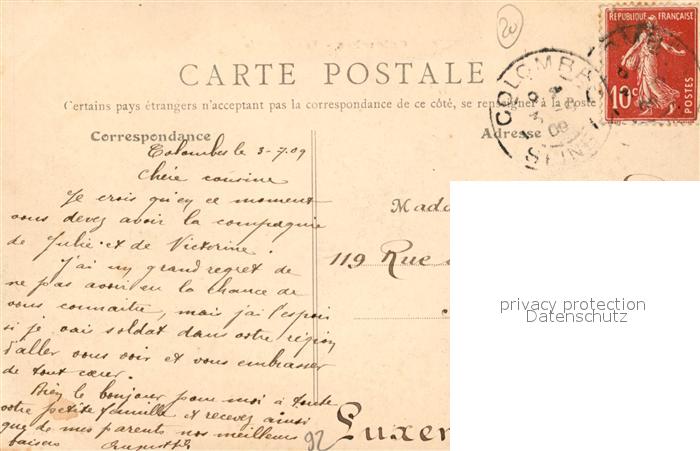 20
RÉPUBLIQUE FRANÇAISE
10c
POSTES
COLOMBES
SEINE
CARTE POSTALE
Certains pays étrangers n'acceptant pas la correspondance de ce côté, se renseigner à la Poste
Correspondance
Adresse
Colombes le 3-7.09
Chère cousine
Je crois qu'en ce moment
vous devez avoir la compagnie
de Julie et de Victorine.
J'ai un grand regret de
ne pas avoir eu la chance de
vous connaitre, mais j'ai l'espoir
si je vais soldat dans votre région
d'aller vous voir et vous embrasser
de tout cœur.
Bien le bonjour pour moi à toute
votre petite famille et recevez ainsi
que de mes parents nos meilleurs
baisers
Mada
119 Rue
Luxem
92
privacy protection
Datenschutz